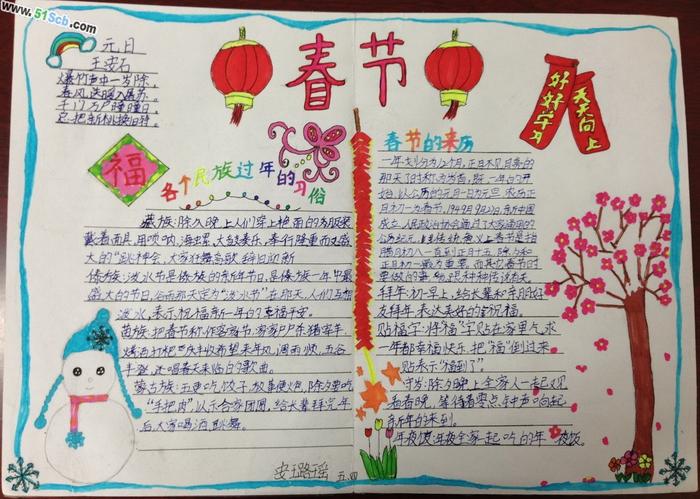 www.51Scb.com
元日
王安石
爆竹声中一岁除,
春风送暖入屠苏。
千门万户曈曈日,
总把新桃换旧符。
春节
好好学习
天天向上
福
各个民族过年的习俗
藏族:除夕晚上人们穿上艳丽的服装
戴着面具,用唢呐、海螺、大鼓奏乐,举行隆重而又盛
大的"跳神会,大家狂舞高歌 辞旧迎新
傣族:泼水节是傣族的新年节日,是傣族一年中最
盛大的节日,谷雨那天定为"泼水节"在那天,人们互相
泼水,表示祝福新一年的幸福平安。
苗族:把春节称作客家节 家家户户杀猪宰羊,
烤酒打粑 庆丰收希望来年风调雨顺,五谷
丰登,还唱春天来临的歌曲。
蒙古族:五更吃饺子,放鞭炮,除夕要吃
"手把肉",以示合家团圆,给长辈拜完年
后大家喝酒跳舞。
春节的来历
一年划分为12个月,
始,以公历的元月一日为元旦 农历正
月初一为春节,1949年9月27日,新中国
成立,人民政治协会通过了
公历纪元,传统意义上春节是指
腊月初八一直到正月十五,除夕和正
月初一最为重要。
拜年:初一早上,给长辈和亲朋好
友拜年,表达美好的祝福。
贴福字:将"福"字贴在家里,求
一年都幸福快乐,把"福"倒过来
贴表示"福到了"。
守岁:除夕晚上全家人一起观
看春晚,等待着零点钟声响起
新年的来到。
年夜饭:全家一起吃的年夜饭。
五.四